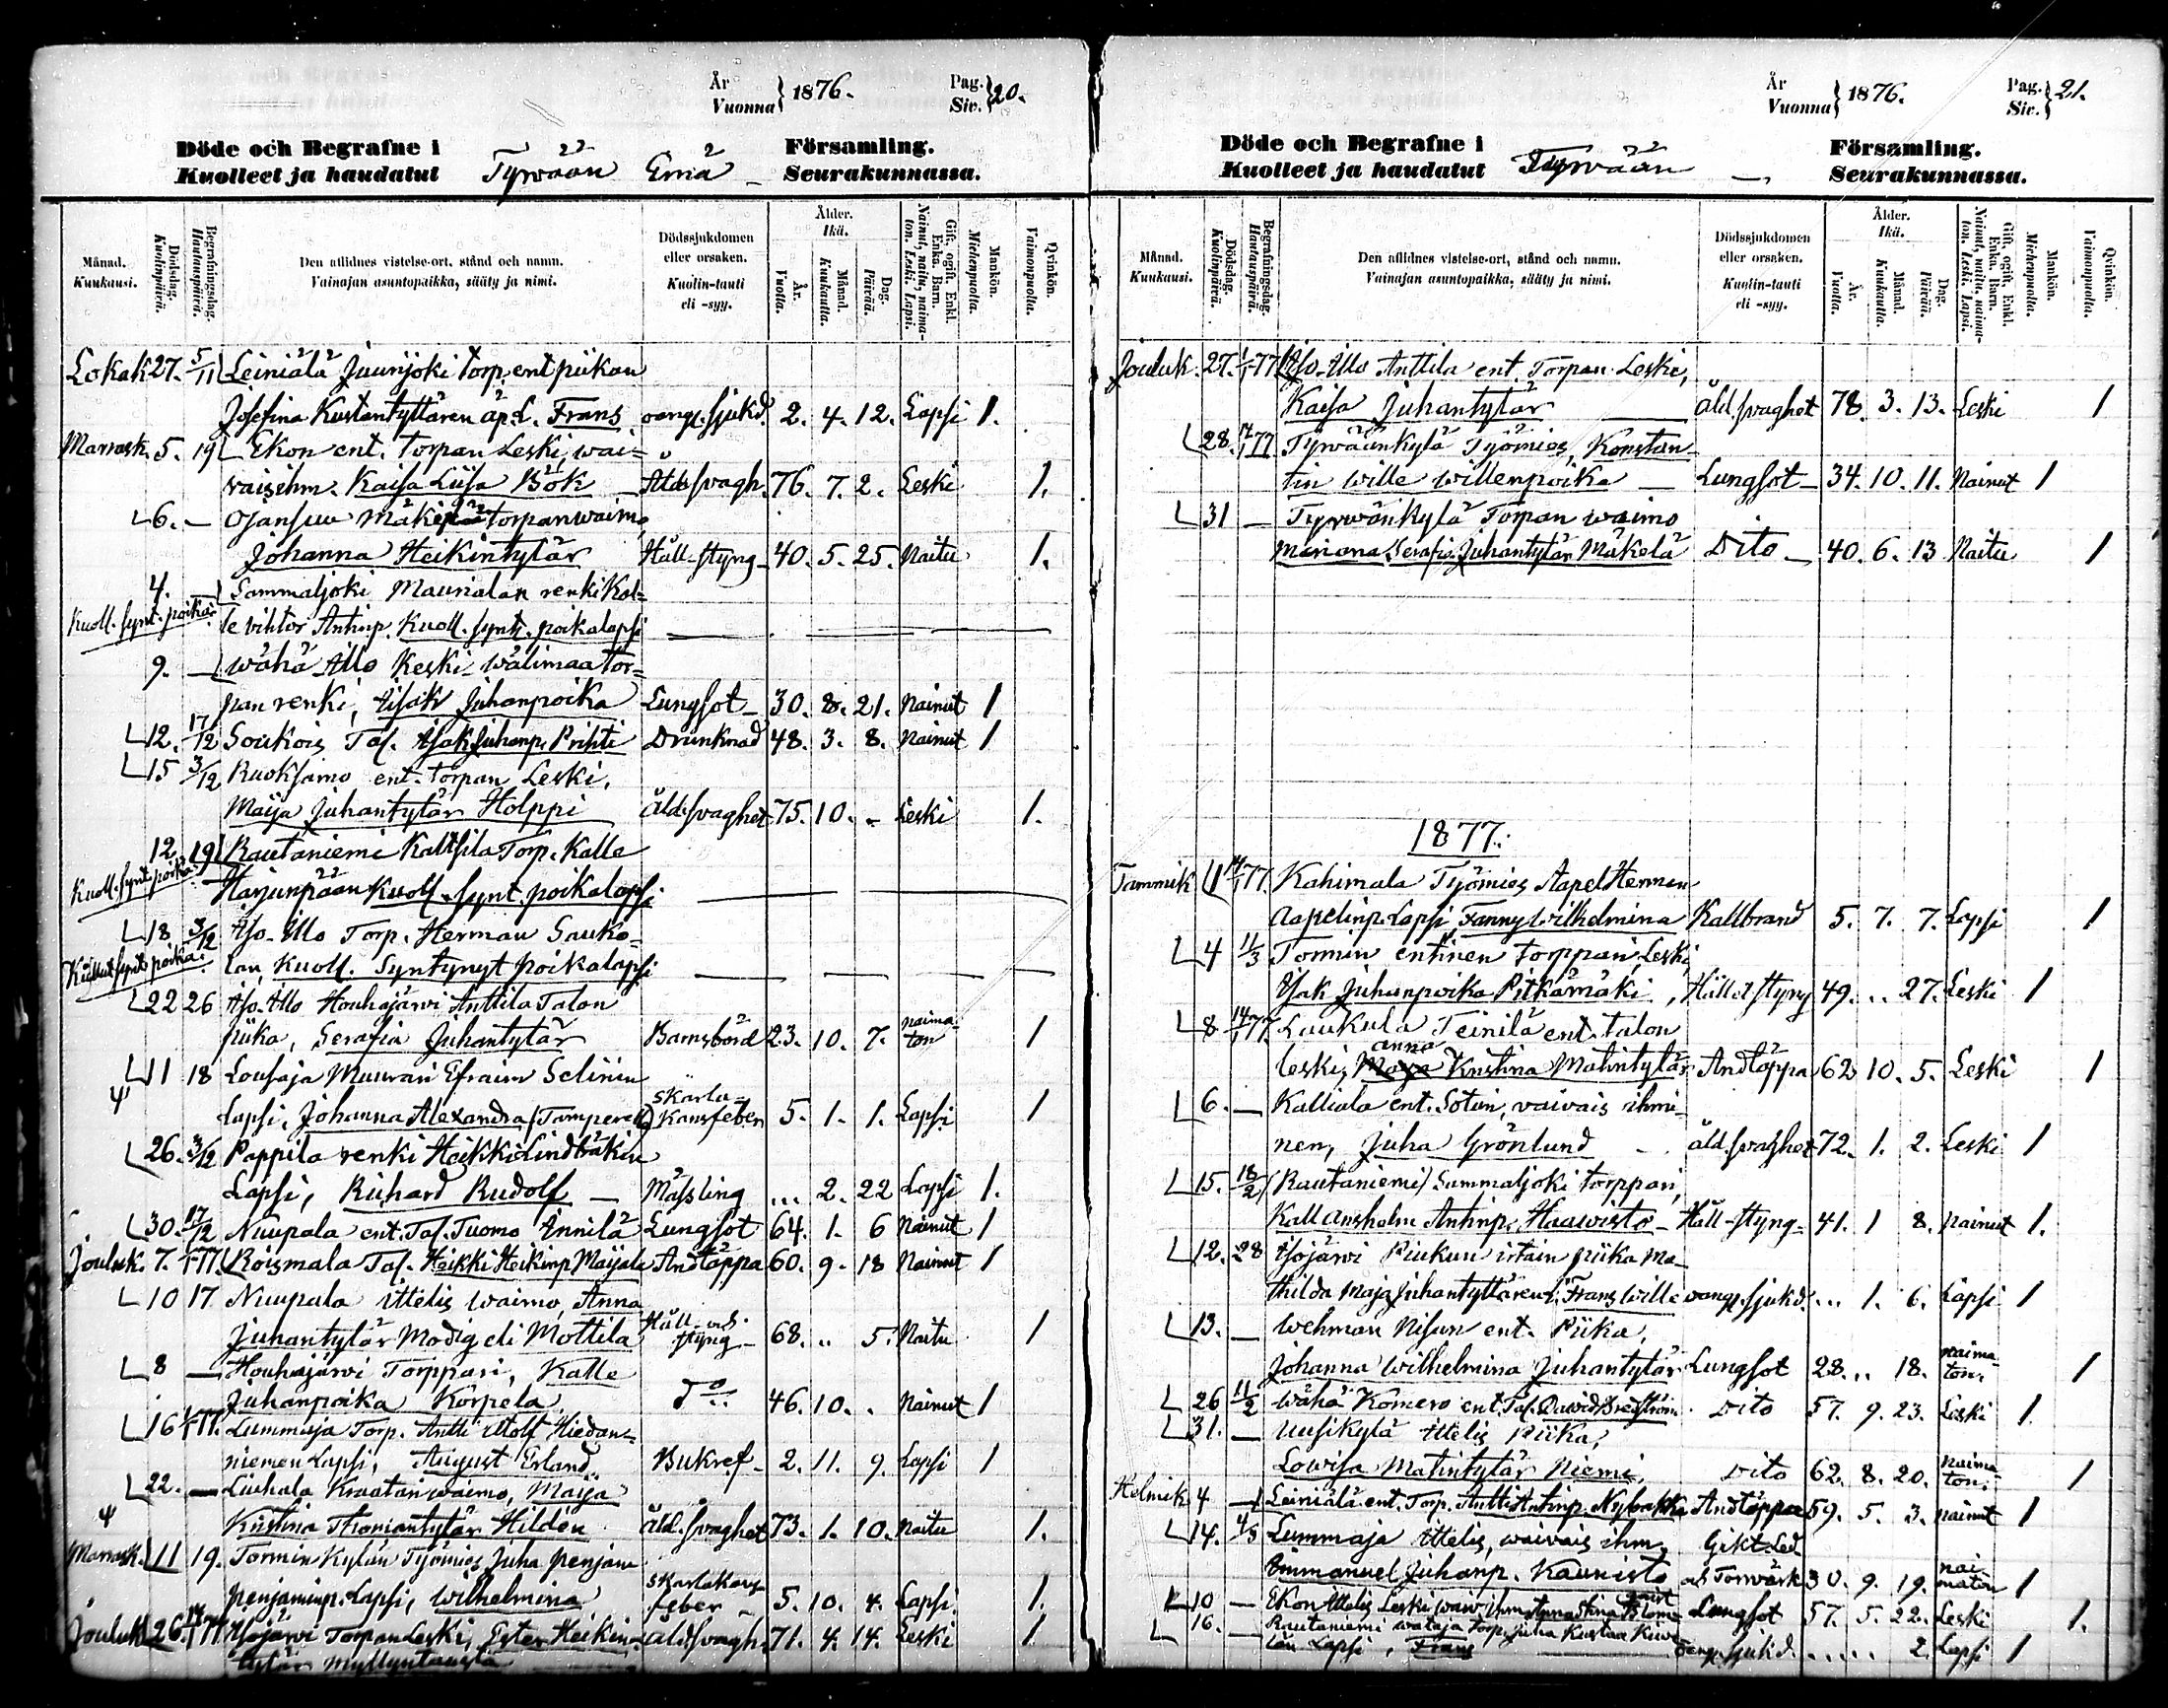 År
Vuonna } 1876.
Pag.
Siv. } 20.
Döde och Begrafne i
Kuolleet ja haudatut
Tyrvään Emä
Församling.
Seurakunnassa.
Månad.
Kuukausi.
Dödsdag.
Kuolinpäivä.
Begrafningsdag.
Hautauspäivä.
Den aflidnes vistelse-ort, stånd och namn.
Vainajan asuntopaikka, sääty ja nimi.
Dödssjukdomen
eller orsaken.
Kuolin-tauti
eli -syy.
Ålder.
Ikä.
År.
Vuotta.
Månad.
Kuukautta.
Dag.
Päivää.
Gift, ogift. Enkl.
Enka. Barn.
Nainut, naitu, naima-
ton. Leski. Lapsi.
Mankön.
Miehenpuolta.
Qvinkön.
Vaimonpuolta.
Lokak 27. 5/11 Leiniälä Juurijoki torp. ent piikan
Josefina Kustantyttären äp. L. Frans oangf. sjukd. 2. 4. 12. Lapsi 1.
Marrask. 5. 19 Ekon ent. torpan Leski, wai-
vaisihm. Kaisa Liisa Böök Ålds svagh. 76. 7. 2. Leski 1.
6. — Ojansuu Mäkipää torpan waimo
Johanna Heikintytär Håll-styng 40. 5. 25. Naitu 1.
4. — Sammaljoki Maurialan renki Kal-
Kuoll. synt. poika le vihtor Antinp. Kuoll. synt. poikalapsi
9. — wähä Allo Keski-wälimaa tor-
pan renki, Iisak Juhanpoika Lungsot 30. 8. 21. Nainut 1
12. 17/12 Soukois Tal. Isak Juhanp. Prihti Drunknad 48. 3. 8. Nainut 1
15 3/12 Ruoksamo ent. torpan Leski,
Maija Juhantytär Holppi Åld. svaghet 75. 10. - Leski 1.
12. 19 Rautaniemi Kaltsila Torp. Kalle
Kuoll. synt poika Harjunpään Kuoll. synt. poikalapsi
18 3/12 Iso-Allo Torp. Herman Sauko-
Kuollut synt poika. lan, Kuoll. Syntynyt poikalapsi
22 26 Iso-Allo Houhajärvi Anttila Talon
piika, Serafia Juhantytär Barnsbörd 23. 10. 7. naima-
ton 1
11 18 Lousaja Muurari Efraim Selinin
Lapsi, Johanna Alexandra (Tampereella) Skarla-
kansfeber 5. 1. 1. Lapsi 1
26. 3/12 Pappila renki Heikki Lindbäkin
Lapsi, Richard Rudolf Mässling ... 2. 22 Lapsi 1.
30. 17/12 Nuupala ent. Tal. Tuomo Annila Lungsot 64. 1. 6 Nainut 1
Jouluk. 7. 1/1 77. Roismala Tal. Heikki Heikinp. Maijala Andtäppa 60. 9. 18 Nainut 1
10 17 Nuupala ittelis waimo, Anna
Juhantytär Modig eli Mottila Håll och
styng 68. .. 5. Naitu 1
8 — Houhajärvi Torppari, Kalle
Juhanpoika Korpela Do 46. 10. . Nainut 1
16 1/1 77. Lummaja Torp. Antti Adolf Hiedan-
niemen Lapsi, August Erland Bukref 2. 11. 9. Lapsi 1
22. — Liuhala Kraatari waimo, Maija
Kristina Thomantytär Hildén Åld. svaghet 73. 1. 10. Naitu 1.
Marrask. 11 19. Tormin Kylän Työmies Juha Penjam
Penjaminp. Lapsi, Wilhelmina Skarlakans
feber 5. 10. 4. Lapsi 1.
Jouluk 26. Isojärvi Torpan Leski, Ester Heikin- Åld. svagh. 71. 4. 14. Leski 1
tytär Myllyntausta
År
Vuonna } 1876.
Pag.
Siv. } 21.
Döde och Begrafne i
Kuolleet ja haudatut
Tyrvään
Församling.
Seurakunnassa.
Månad.
Kuukausi.
Dödsdag.
Kuolinpäivä.
Begrafningsdag.
Hautauspäivä.
Den aflidnes vistelse-ort, stånd och namn.
Vainajan asuntopaikka, sääty ja nimi.
Dödssjukdomen
eller orsaken.
Kuolin-tauti
eli -syy.
Ålder.
Ikä.
År.
Vuotta.
Månad.
Kuukautta.
Dag.
Päivää.
Gift, ogift. Enkl.
Enka. Barn.
Nainut, naitu, naima-
ton. Leski. Lapsi.
Mankön.
Miehenpuolta.
Qvinkön.
Vaimonpuolta.
Jouluk. 27. 1/1 77 Iso-Allo Anttila ent. Torpan Leski,
Kaisa Juhantytär Åld. svaghet 78. 3. 13. Leski 1
28. 7/1 77 Tyrväänkylä Työmies, Konstan-
tin Wille Willenpoika Lungsot 34. 10. 11. Nainut 1
31 — Tyrvänkylä Torpan waimo
Mariana Serafia Juhantytär Mäkelä Dito 40. 6. 13 Naitu 1
1877.
Tammik 1 14/1 77. Kahimala Työmies Aapel Herman
Aapelinp. Lapsi, Fanny Wilhelmina Kallbrand 5. 7. 7. Lapsi 1
4 11/3 Tormin entinen torppari, Leski
Isak Juhanpoika Pitkämäki, Håll o styng 49. .. 27. Leski 1
8 14/1 77. Laukula Teinilä ent. talon
anna
leski, Maija Kristina Matintytär Andtäppa 62 10. 5. Leski 1
6. — Kalliala ent. Sotim, vaivais ihmi-
nen, Juha Grönlund åld. svaghet 72. 1. 2. Leski 1
15. 18/2 (Rautaniemi) Sammaljoki torppari,
Kall Ansholm Antinp. Haavisto Håll-styng 41. 1 8. nainut 1.
12. 28 Isojärvi Riukun irtain piika Ma-
thilda Maja Juhantyttären l. Frans Wille oangf. sjukd. ... 1. 6. Lapsi 1
13. — Wehman Nisun ent. Piika,
Johanna Wilhelmina Juhantytär Lungsot 28. .. 18. naima-
ton. 1
26 11/2 Wähä Komero ent. Tal. David Bredström Dito 57. 9. 23. Leski 1.
31. — Uusikylä Ittelis Piika,
Lowisa Matintytär Niemi, Dito 62. 8. 20. Naima-
ton. 1
Helmik 4 — Leiniälä ent. Torp. Antti Antinp. Nybakka Andtäppa 59. 5. 3. nainut 1
14. 4/3 Lummaja Ittelis, waivais ihm, Gikt. Led.
Emmanuel Juhanp. Kaunisto och Torrvärk 30. 9. 19. nai-
maton 1
10 — Ekon Ittelis Leski Lungsot 57. 5. 22. Leski 1.
16. — Rautaniemi Torp. Juha Kustaa
Lapsi, Frans oangf. sjukd. .... 2. Lapsi 1